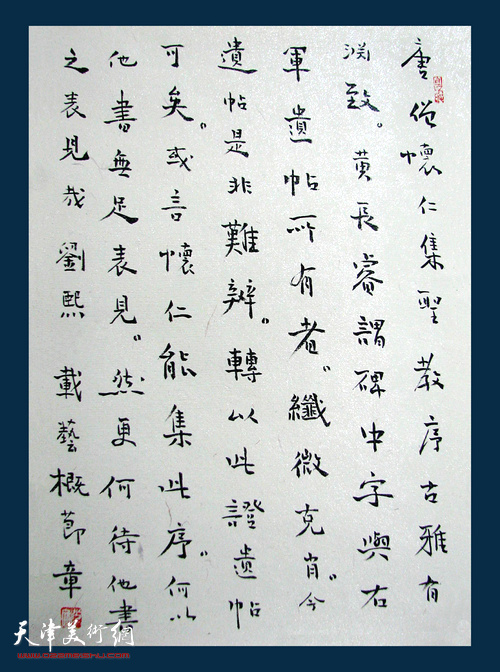 唐僧懷仁集聖教序古雅有
渕致。黄長睿謂碑中字與右
軍遺帖所有者，纖微克肖，今
遺帖是非難辨，轉以此證遺帖
可矣，或言懷仁能集此序，何以
他書無足表見，然更何待他書
之表見哉 劉熙 載藝概節章
天津美術網